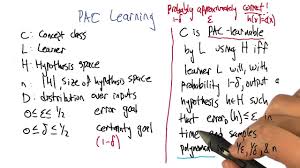 PAC Learning
C: Concept class
L: Learner
H: Hypothesis space
n: |H|, size of hypothesis space
D: distribution over inputs
0 ≤ ε ≤ 1/2 error goal
0 ≤ δ ≤ 1/2 certainty goal
(1-δ)
Probably approximately correct!
1-δ ε h(x)=c(x)
C is PAC-learnable
by L using H iff
learner L will, with
probability 1-δ, output a
hypothesis h∈H such
that error_D(h) ≤ ε in
time and samples
polynomial in 1/ε, 1/δ, & n